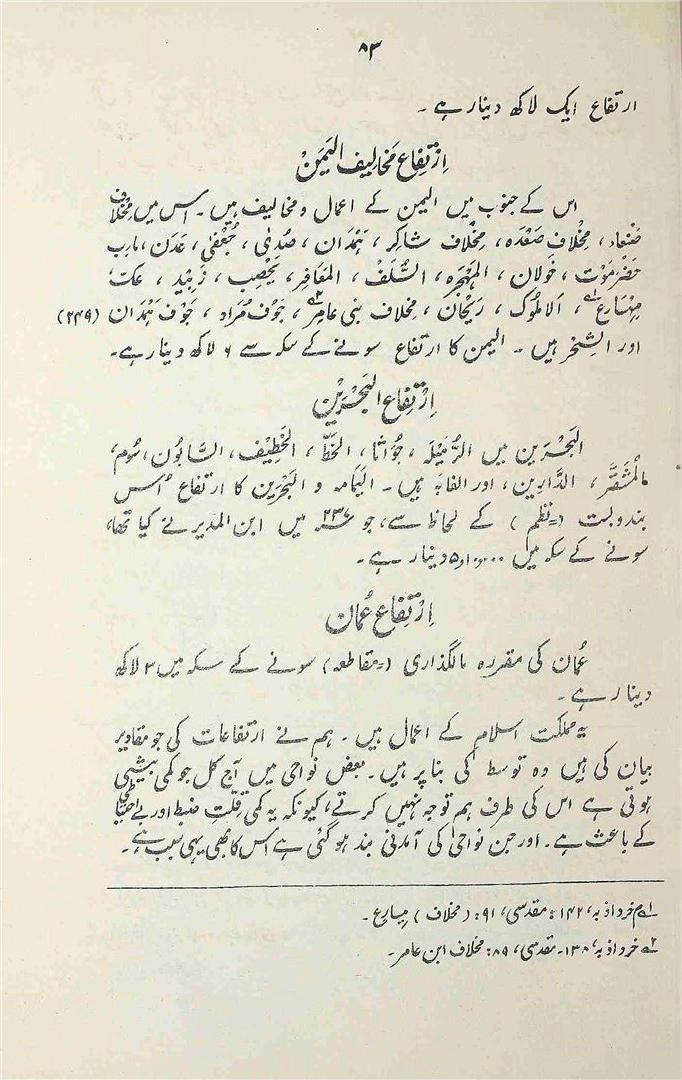 ۸۳
ارتفاع ایک لاکھ دینار ہے ۔
اِرْتِفاع مَخالِیف الیَمَنْ
اس کے جنوب میں الیمن کے اعمال و مخالیف ہیں ۔ اس میں مِخْلاف
صَنْعاء ، مِخْلاف صَعْدَہ ، مِخْلاف شاکِر ، ہَمْدَان ، صُدیٰ ، جُعْفیٰ ، عَدَن ، مارب
حَضْرَمَوْت ، خَولان ، المَہْجَرہ ، السُّلَف ، المَعَافِر ، یَحْصِب ، زَبِیْد ، عکّ
مِہْسَارِع۱ ، اَلاملُوک ، رَیحْان ، مِخلاف بنی عامِر۲ ، جَوْف مُرَاد ، جَوْف ہَمْدَان (۲۴۹)
اور الشِحْر ہیں ۔ الیمن کا ارتفاع سونے کے سکہ سے ۶ لاکھ دینار ہے۔
اِرْتِفاع البَحْرَیْن
البَحْرَین میں الرُّمَیْلَہ ، جُوَاثا ، الخَطّ ، الخَطِیْف ، السَّابُون ، سُوم ،
المُشَقَّر ، الدَّارِین ، اور الغابَہ ہیں ۔ الیَمَامہ و البَحْرین کا ارتفاع اُس
بندوبست (= نظم) کے لحاظ سے، جو ۲۳۷ھ میں ابن المدبر نے کیا تھا،
سونے کے سکہ میں ۵۱۰۰۰۰ دینار ہے ۔
اِرْتِفاع عُمان
عُمان کی مقررہ مالگذاری (= مقاطعہ) سونے کے سکہ میں ۳ لاکھ
دینار ہے ۔
یہ مملکت اسلام کے اعمال ہیں ۔ ہم نے ارتفاعات کی جو مقادیر
بیان کی ہیں وہ توسط کی بنا پر ہیں ۔ بعض نواحی میں آج کل جو کمی بیشی
ہوتی ہے اس کی طرف ہم توجہ نہیں کرتے، کیونکہ یہ کمی قلتِ ضبط اور بے احتیاطی
کے باعث ہے ۔ اور جن نواحی کی آمدنی بند ہو گئی ہے اس کا بھی یہی سبب ہے ۔
۱ خرداذبہ، ۱۴۲ : مقدسی، ۹۱ : (مخلاف) مہسارع ۔
۲ خرداذبہ، ۱۳۸ ۔ مقدسی، ۸۹ : مخلاف ابن عامر ۔